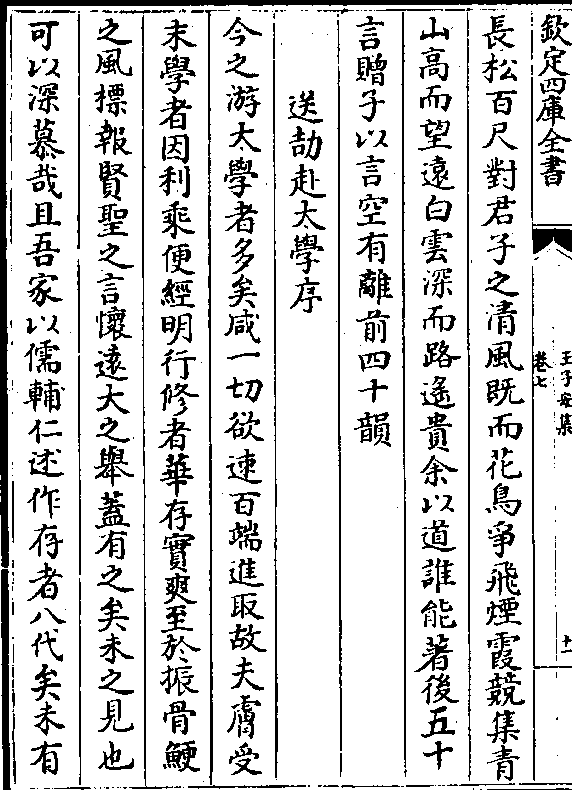 欽定四庫全書
王子安集
卷七
十一
長松百尺對君子之清風既而花鳥爭飛煙霞競集青
山高而望遠白雲深而路遙貴余以道誰能著後五十
言贈子以言空有離前四十韻
送劼赴太學序
今之游太學者多矣咸一切欲速百端進取故夫膚受
末學者因利乘便經明行修者華存實爽至於振骨鯁
之風標報賢聖之言懷遠大之舉蓋有之矣未之見也
可以深慕哉且吾家以儒輔仁述作存者八代矣未有